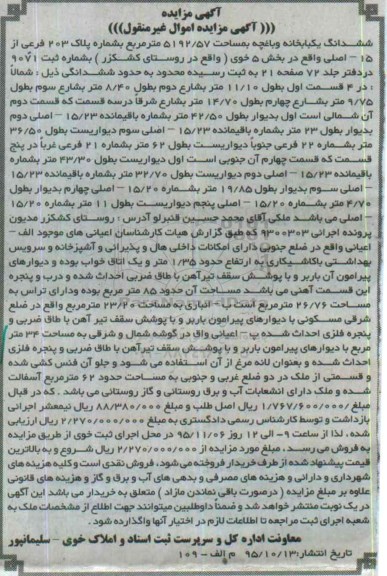 آگهی مزایده
((( آگهی مزایده اموال غیرمنقول)))
ششدانگ یکبابخانه وباغچه بمساحت ۵۱۹۲/۵۷ مترمربع بشماره پلاک ۲۰۳ فرعی از
۱۵ - اصلی واقع در بخش ۵ خوی ( واقع در روستای کشکزر ) بشماره ثبت ۹۰۷۱
دردفتر جلد ۷۲ صفحه ۲۱ به ثبت رسیده محدود به حدود ششدانگی ذیل : شمالاً
: در ۴ قسمت اول بطول ۱۱/۱۰ متر بشارع دوم بطول ۸/۴۰ متر بشارع سوم بطول
۹/۷۵ متر بشارع چهارم بطول ۱۴/۷۰ متر بشارع شرقاً درسه قسمت که قسمت دوم
آن شمالی است اول بدیوار بطول ۴۲/۵۰ متر بشماره باقیمانده ۱۵/۲۳ - اصلی دوم
بدیوار بطول ۲۳ متر بشماره باقیمانده ۱۵/۲۳ - اصلی سوم دیواریست بطول ۳۶/۵۰
متر بشماره ۲۲ فرعی جنوبا دیواریست بطول ۶۲ متر بشماره ۲۱ فرعی غرباً در پنج
قسمت که قسمت چهارم آن جنوبی است اول دیواریست بطول ۴۳/۳۰ متر بشماره
باقیمانده ۱۵/۲۳ - اصلی دوم دیواریست بطول ۳۲/۷۰ متر بشماره باقیمانده ۱۵/۲۳
- اصلی سوم بدیوار بطول ۱۹/۸۵ متر بشماره ۱۵/۲۰ - اصلی چهارم بدیوار بطول
۴/۷۰ متر بشماره ۱۵/۲۰ - اصلی پنجم دیواریست بطول ۱۱ متر بشماره ۱۵/۲۰
- اصلی می باشد ملکی آقای محمد حسین قنبرلو آدرس : روستای کشکزر مدیون
پرونده اجرائی ۹۳۰۰۳۰۳ که طبق گزارش هیات کارشناسان اعیانی های موجود الف -
اعیانی واقع در ضلع جنوبی دارای امکانات داخلی هال و پذیرائی و آشپزخانه و سرویس
بهداشتی باکاشیکاری به ارتفاع حدود ۱/۳۵ متر و یک اتاق خواب بوده و دیوارهای
پیرامون آن باربر و با پوشش سقف تیرآهن با طاق ضربی احداث شده و درب و پنجره
این قسمت آهنی می باشد مساحت آن حدود ۸۵ متر مربع بوده ودارای تراس به
مساحت ۲۶/۷۶ مترمربع است ب - انباری به مساحت ۲۳/۲۰ مترمربع واقع در ضلع
شرقی مسکونی با دیوارهای پیرامون باربر و با پوشش سقف تیر آهن با طاق ضربی و
پنجره فلزی احداث شده پ – اعیانی واق در گوشه شمال و شرقی به مساحت ۳۴ متر
مربع با دیوارهای پیرامون باربر و با پوشش سقف تیرآهن با طاق ضربی و پنجره فلزی
احداث شده و بعنوان لانه مرغ از آن استفاده می شود و جلو آن فنس کشی شده
و قسمتی از ملک در دو ضلع غربی و جنوبی به مساحت حدود ۶۲ مترمربع آسفالت
شده و ملک دارای انشعابات آب و برق روستائی و گاز روستائی می باشد . که در قبال
مبلغ ۱/۷۶۷/۶۰۰/۰۰۰ ریال اصل طلب و مبلغ ۸۸/۳۸۰/۰۰۰ ریال نیمعشر اجرائی
بازداشت و توسط کارشناس رسمی دادگستری به مبلغ ۲/۲۷۰/۰۰۰/۰۰۰ ریال ارزیابی
شده . لذا از ساعت ۹- الی ۱۲ روز ۹۵/۱۱/۰۶ در محل اجرای ثبت خوی از طریق مزایده
به فروش می رسد . مبلغ مورد مزایده از ۲/۲۷۰/۰۰۰/۰۰۰ ریال شروع و به بالاترین
قیمت پیشنهاد شده از طرف خریدار فروخته می شود. فروش نقدی است و کلیه هزینه های
شهرداری و دارائی و هزینه های مصرفی و بدهی های آب و برق و گاز و هزینه های قانونی
علاوه بر مبلغ مزایده ( درصورت باقی نماندن مازاد ) متعلق به خریدار می باشد این آگهی
در یک نوبت منتشر خواهد شد و ضمناً داوطلبین میتوانند جهت اطلاع از مشخصات ملک به
شعبه اجرای ثبت مراجعه تا اطلاعات لازم در اختیار آنها واگذارده شود .
معاونت اداره کل و سرپرست ثبت اسناد و املاک خوی – سلیمانپور
تاریخ انتشار: ۹۵/۱۰/۱۳ م الف - ۱۰۹